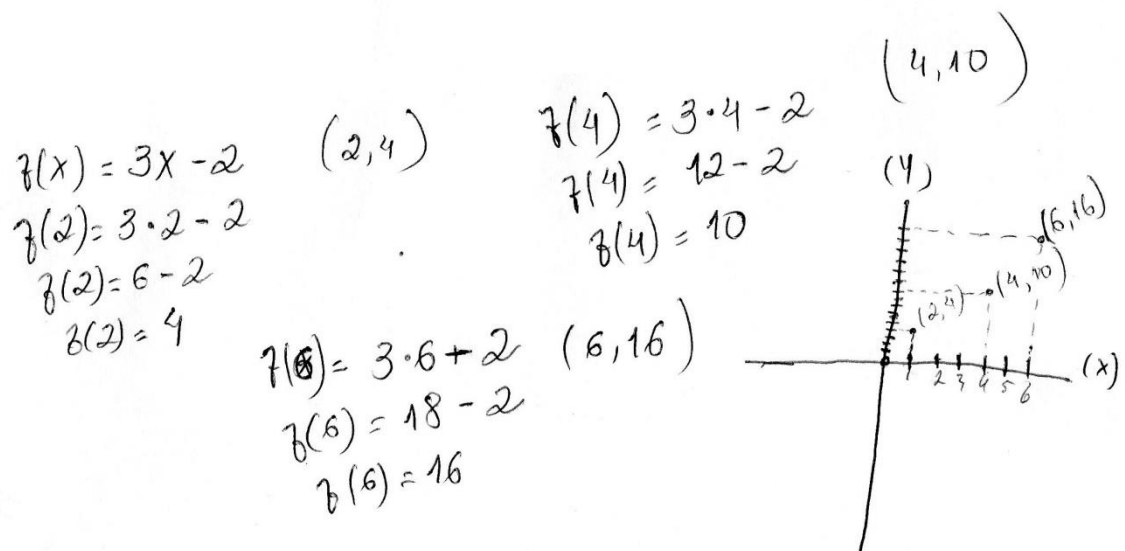 f(x) = 3x - 2
f(2) = 3·2 - 2
f(2) = 6 - 2
f(2) = 4
(2,4)
f(4) = 3·4 - 2
f(4) = 12 - 2
f(4) = 10
(4,10)
f(6) = 3·6 + 2
f(6) = 18 - 2
f(6) = 16
(6,16)
(y)
(6,16)
(4,10)
(2,4)
1 2 3 4 5 6
(x)